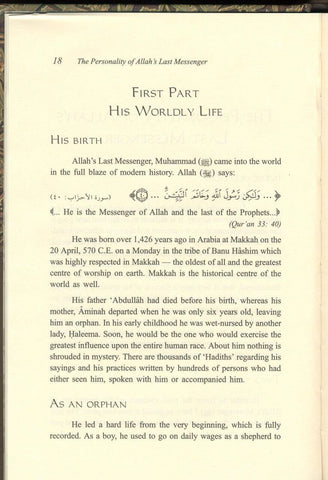 18 The Personality of Allah's Last Messenger
FIRST PART
HIS WORLDLY LIFE
HIS BIRTH
Allah's Last Messenger, Muhammad (ﷺ) came into the world
in the full blaze of modern history. Allah () says:
﴿... وَلَٰكِن رَّسُولَ ٱللَّهِ وَخَاتَمَ ٱلنَّبِيِّـۧنَۗ ... ٤٠﴾ (سورة الأحزاب: ٤٠)
﴾... He is the Messenger of Allah and the last of the Prophets...﴿
(Qur'an 33: 40)
He was born over 1,426 years ago in Arabia at Makkah on the
20 April, 570 C.E. on a Monday in the tribe of Banu Hâshim which
was highly respected in Makkah — the oldest of all and the greatest
centre of worship on earth. Makkah is the historical centre of the
world as well.
His father 'Abdullâh had died before his birth, whereas his
mother, Âminah departed when he was only six years old, leaving
him an orphan. In his early childhood he was wet-nursed by another
lady, Ḥaleema. Soon, he would be the one who would exercise the
greatest influence upon the entire human race. About him nothing is
shrouded in mystery. There are thousands of 'Hadiths' regarding his
sayings and his practices written by hundreds of persons who had
either seen him, spoken with him or accompanied him.
AS AN ORPHAN
He led a hard life from the very beginning, which is fully
recorded. As a boy, he used to go on daily wages as a shepherd to